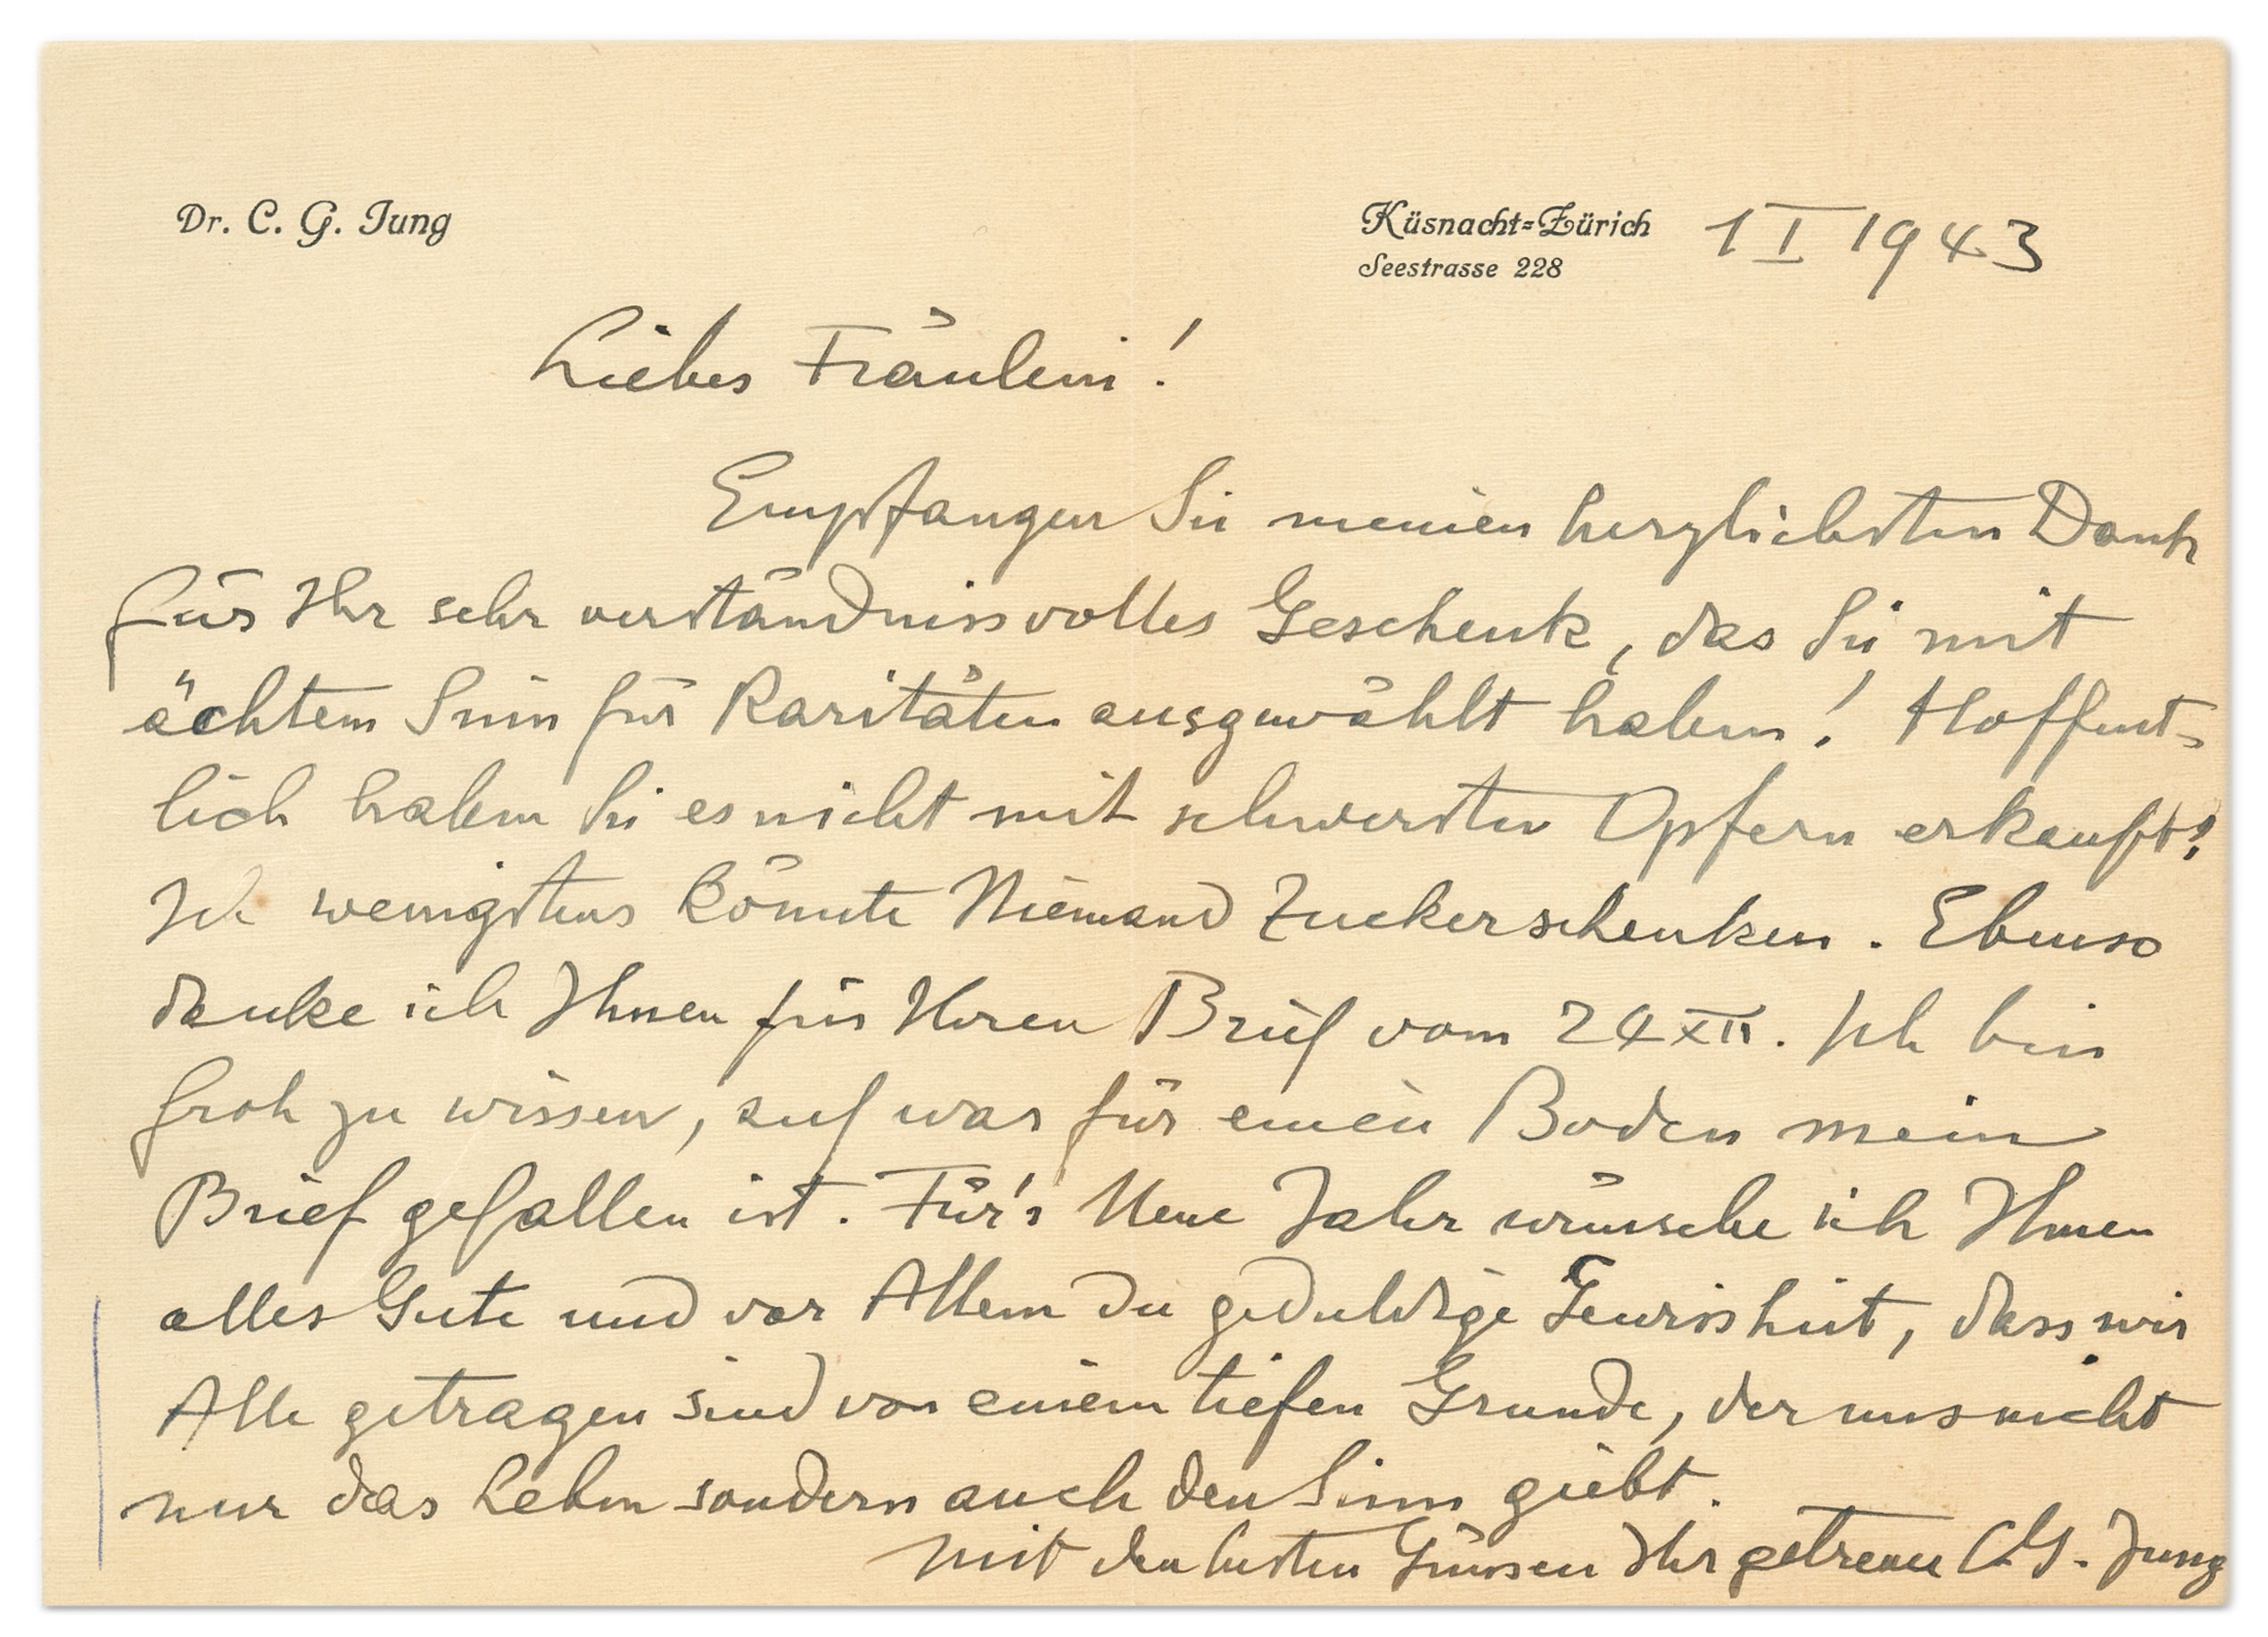 Dr. C. G. Jung
Küsnacht=Zürich 1 I 1943
Seestrasse 228
Liebes Fräulein!
Empfangen Sie meinen herzlichsten Dank
für Ihr sehr verständnissvolles Geschenk, das Sie mit
ächtem Sinn für Raritäten ausgewählt haben! Hoffent-
lich haben Sie es nicht mit schwersten Opfern erkauft?
Ich wenigstens könnte Niemand Zucker schenken. Ebenso
danke ich Ihnen für Ihren Brief vom 24 XII. Ich bin
froh zu wissen, auf was für einen Boden mein
Brief gefallen ist. Für's Neue Jahr wünsche ich Ihnen
alles Gute und vor Allem die geduldige Gewissheit, dass wir
Alle getragen sind von einem tiefen Grunde, der uns nicht
nur das Leben sondern auch den Sinn giebt.
Mit den besten Grüssen Ihr getreuer C.G. Jung